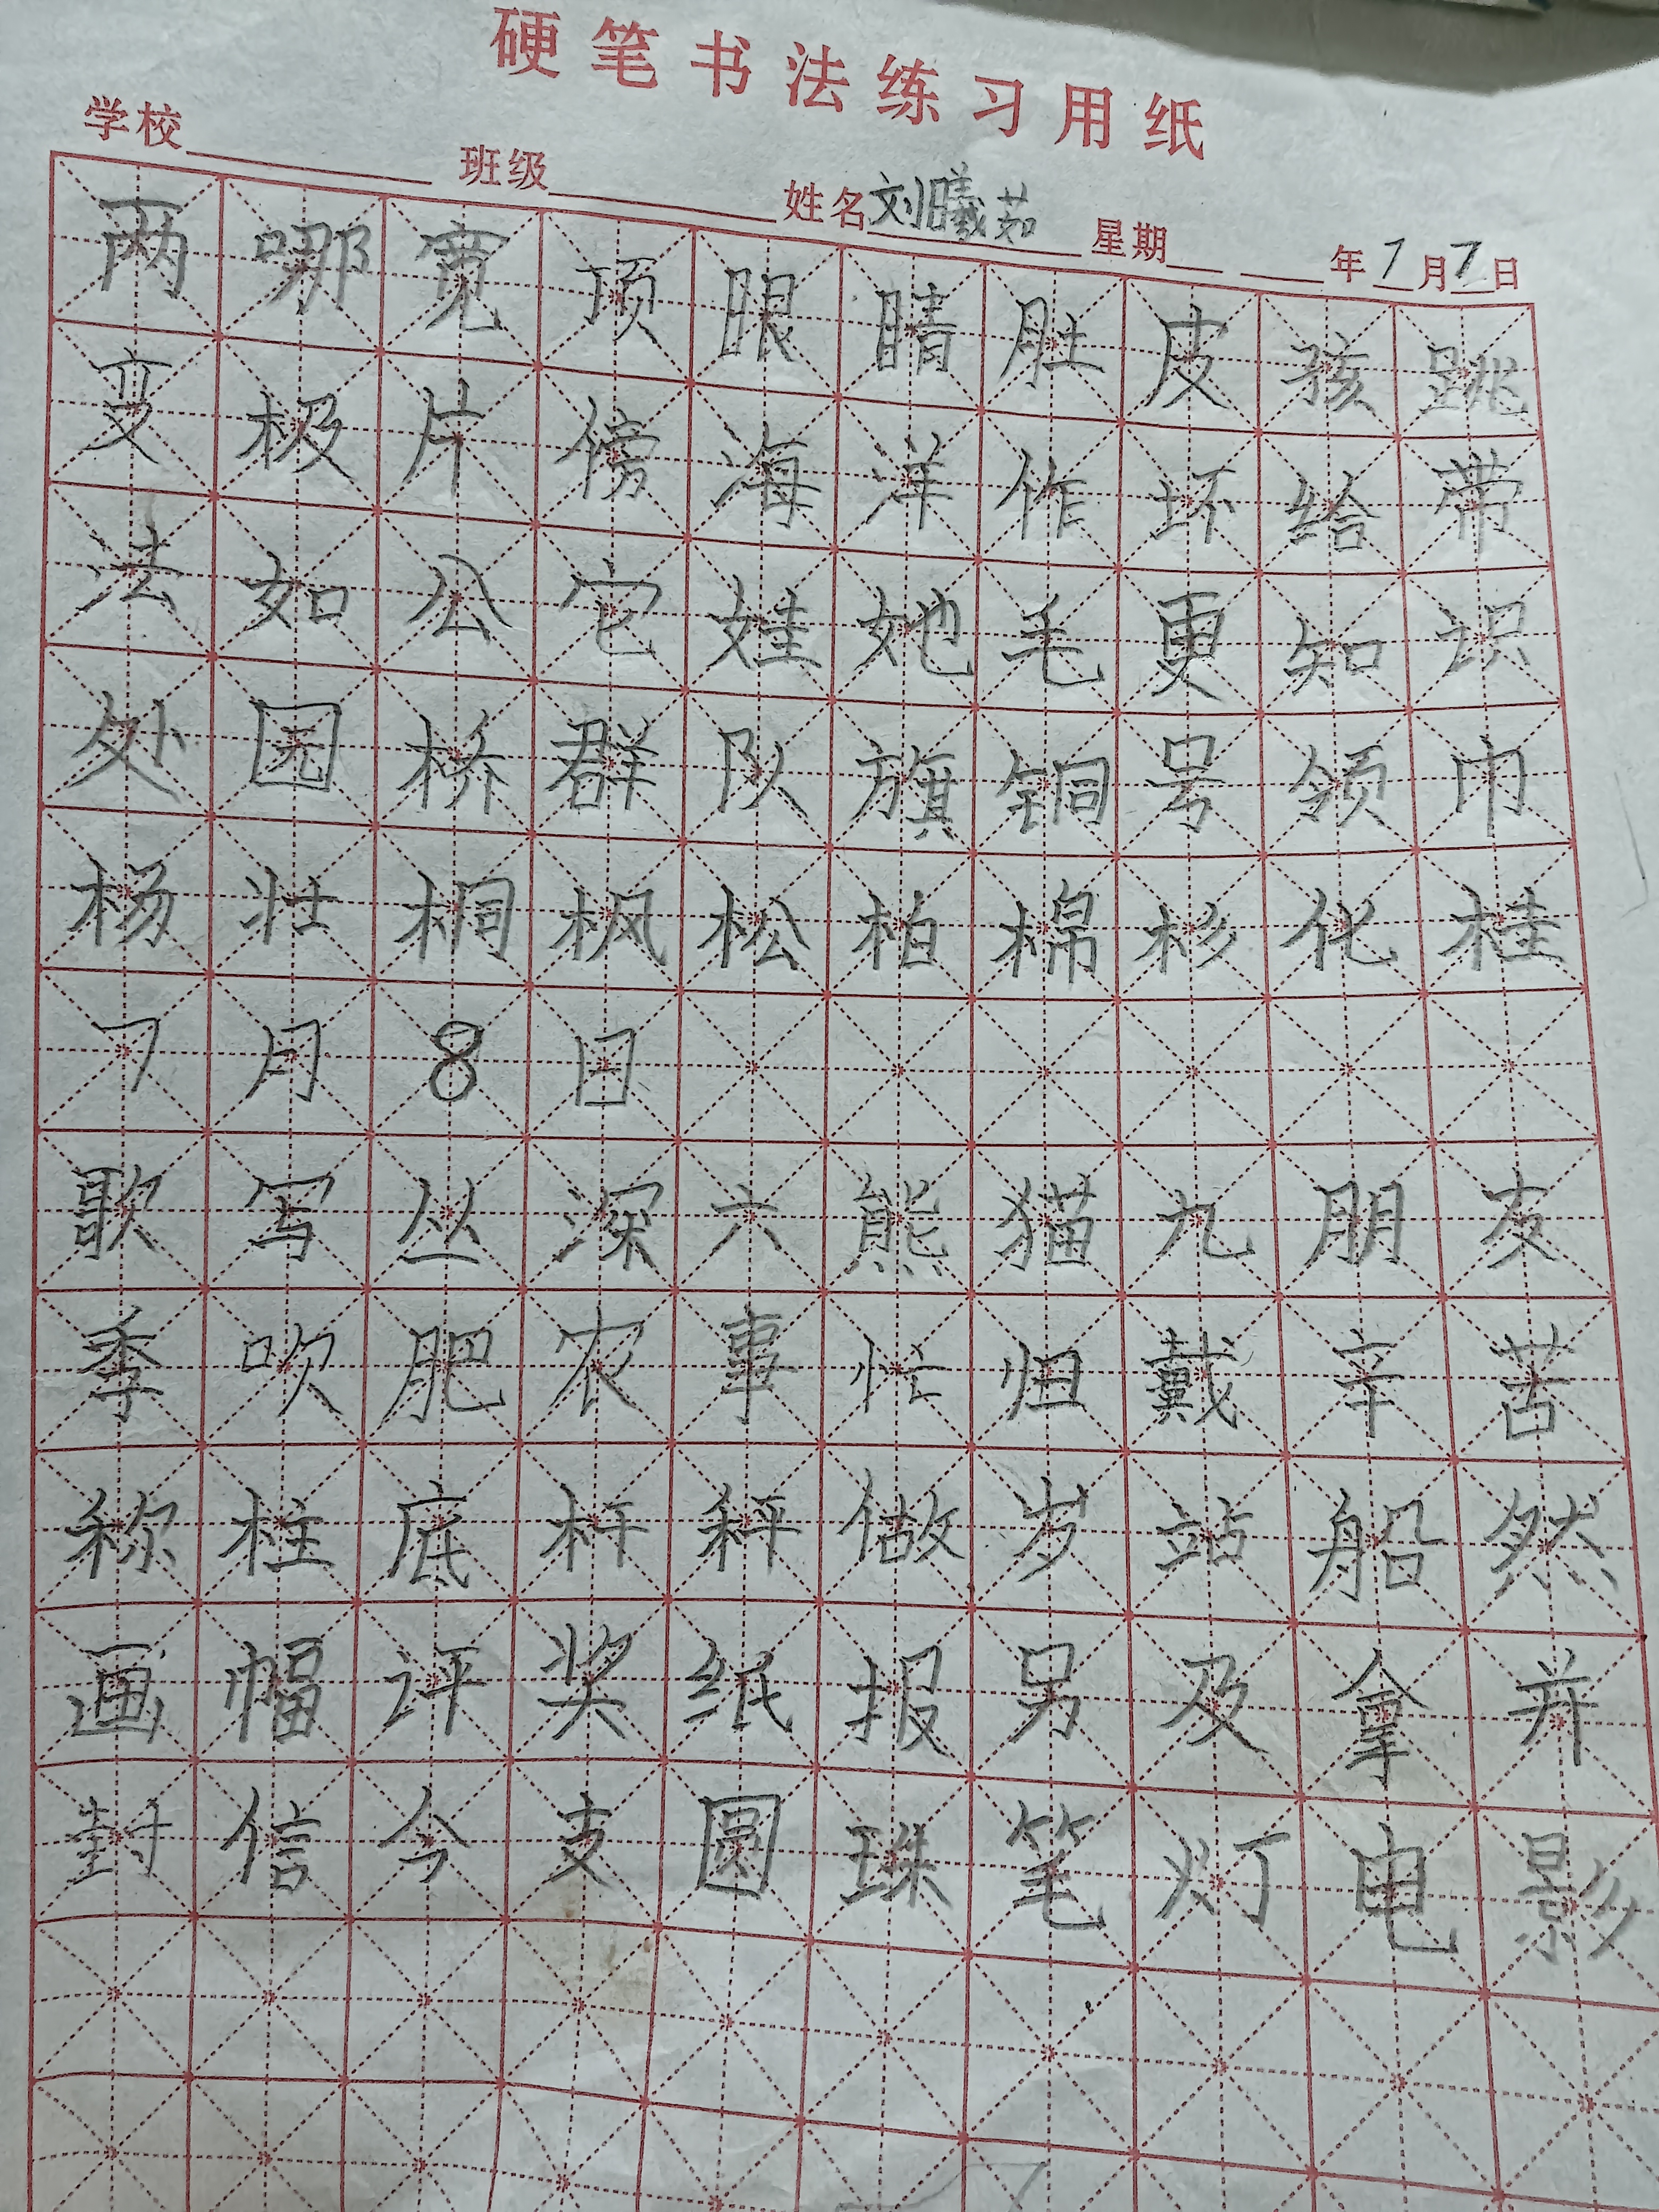 硬笔书法练习用纸
学校 班级 姓名刘曦茹 星期 年7月7日
两哪宽顶眼睛肚皮孩跳
变极片傍海洋作坏给带
法如公它娃她毛更知识
处园桥群队旗铜号领巾
杨壮桐枫松柏棉杉化桂
7月8日
歌写丛深六熊猫九朋友
季吹肥农事忙归戴辛苦
称柱底杆秤做岁站船然
画幅评奖纸报另及拿并
封信今支圆珠笔灯电影